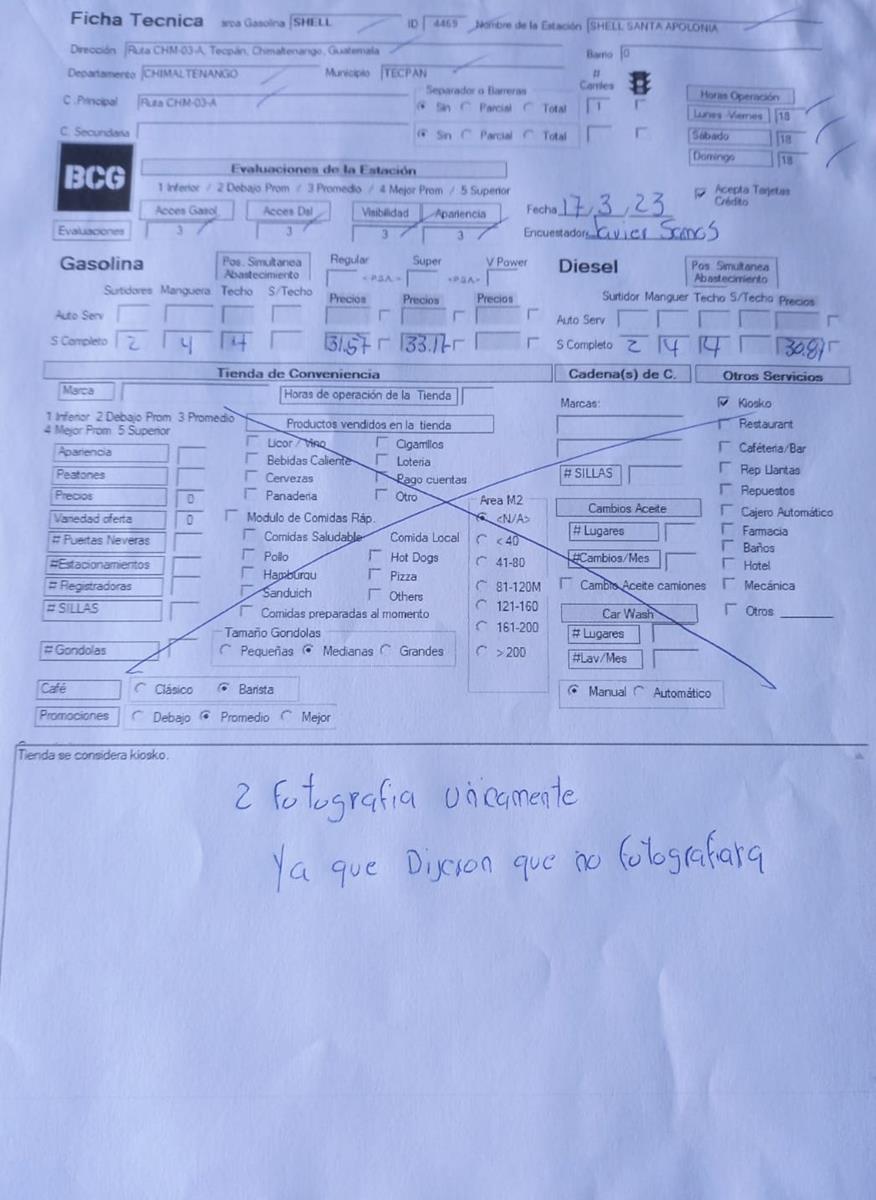 Ficha Tecnica arca Gasolina SHELL ID 4469 Nombre de la Estación SHELL SANTA APOLONIA
Dirección Ruta CHM-03-A, Tecpán, Chimaltenango, Guatemala Barrio 0
Departamento CHIMALTENANGO Municipio TECPAN
Separador o Barreras # Carriles
C .Principal Ruta CHM-03-A Sin Parcial Total 1
C. Secundaria Sin Parcial Total
Horas Operación
Lunes -Viernes 18
Sábado 18
Domingo 18
BCG
Evaluaciones de la Estación
1 Inferior / 2 Debajo Prom / 3 Promedio / 4 Mejor Prom / 5 Superior
Acces Gasol Acces Dsl Visibilidad Apariencia
Evaluaciones 3 3 3 3
Acepta Tarjetas Crédito
Fecha 17, 3, 23
Encuestador Javier
Gasolina Pos. Simultanea Abastecimiento Regular Super V Power
Surtidores Manguera Techo S/Techo Precios Precios Precios
Auto Serv
S Completo 2 4 4 31.57 33.17
Diesel Pos. Simultanea Abastecimiento
Surtidor Manguer Techo S/Techo Precios
Auto Serv
S Completo 2 4 4 30.87
Tienda de Conveniencia
Marca Horas de operación de la Tienda
1 Inferior 2 Debajo Prom 3 Promedio
4 Mejor Prom 5 Superior
Apariencia
Peatones
Precios 0
Variedad oferta 0
# Puertas Neveras
#Estacionamientos
# Registradoras
# SILLAS
# Gondolas
Productos vendidos en la tienda
Licor / Vino Cigarrillos
Bebidas Caliente Loteria
Cervezas Pago cuentas
Panaderia Otro
Modulo de Comidas Ráp.
Comidas Saludable Comida Local
Pollo Hot Dogs
Hamburqu Pizza
Sanduich Others
Comidas preparadas al momento
Tamaño Gondolas
Pequeñas Medianas Grandes
Area M2
<N/A>
< 40
41-80
81-120M
121-160
161-200
> 200
Café Clásico Barista
Promociones Debajo Promedio Mejor
Cadena(s) de C.
Marcas:
# SILLAS
Cambios Aceite
# Lugares
#Cambios/Mes
Cambio Aceite camiones
Car Wash
# Lugares
#Lav/Mes
Manual Automático
Otros Servicios
Kiosko
Restaurant
Caféteria/Bar
Rep Llantas
Repuestos
Cajero Automático
Farmacia
Baños
Hotel
Mecánica
Otros
Tienda se considera kiosko.
2 Fotografia Unicamente
Ya que Dijeron que no fotografiara